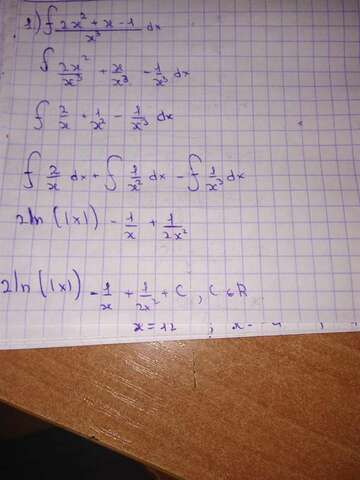 1.) ∫ (2x² + x - 1)/x³ dx
∫ 2x²/x³ + x/x³ - 1/x³ dx
∫ 2/x + 1/x² - 1/x³ dx
∫ 2/x dx + ∫ 1/x² dx - ∫ 1/x³ dx
2ln (|x|) - 1/x + 1/2x²
2ln (|x|) - 1/x + 1/2x² + C, C ∈ R
x = 12 ;